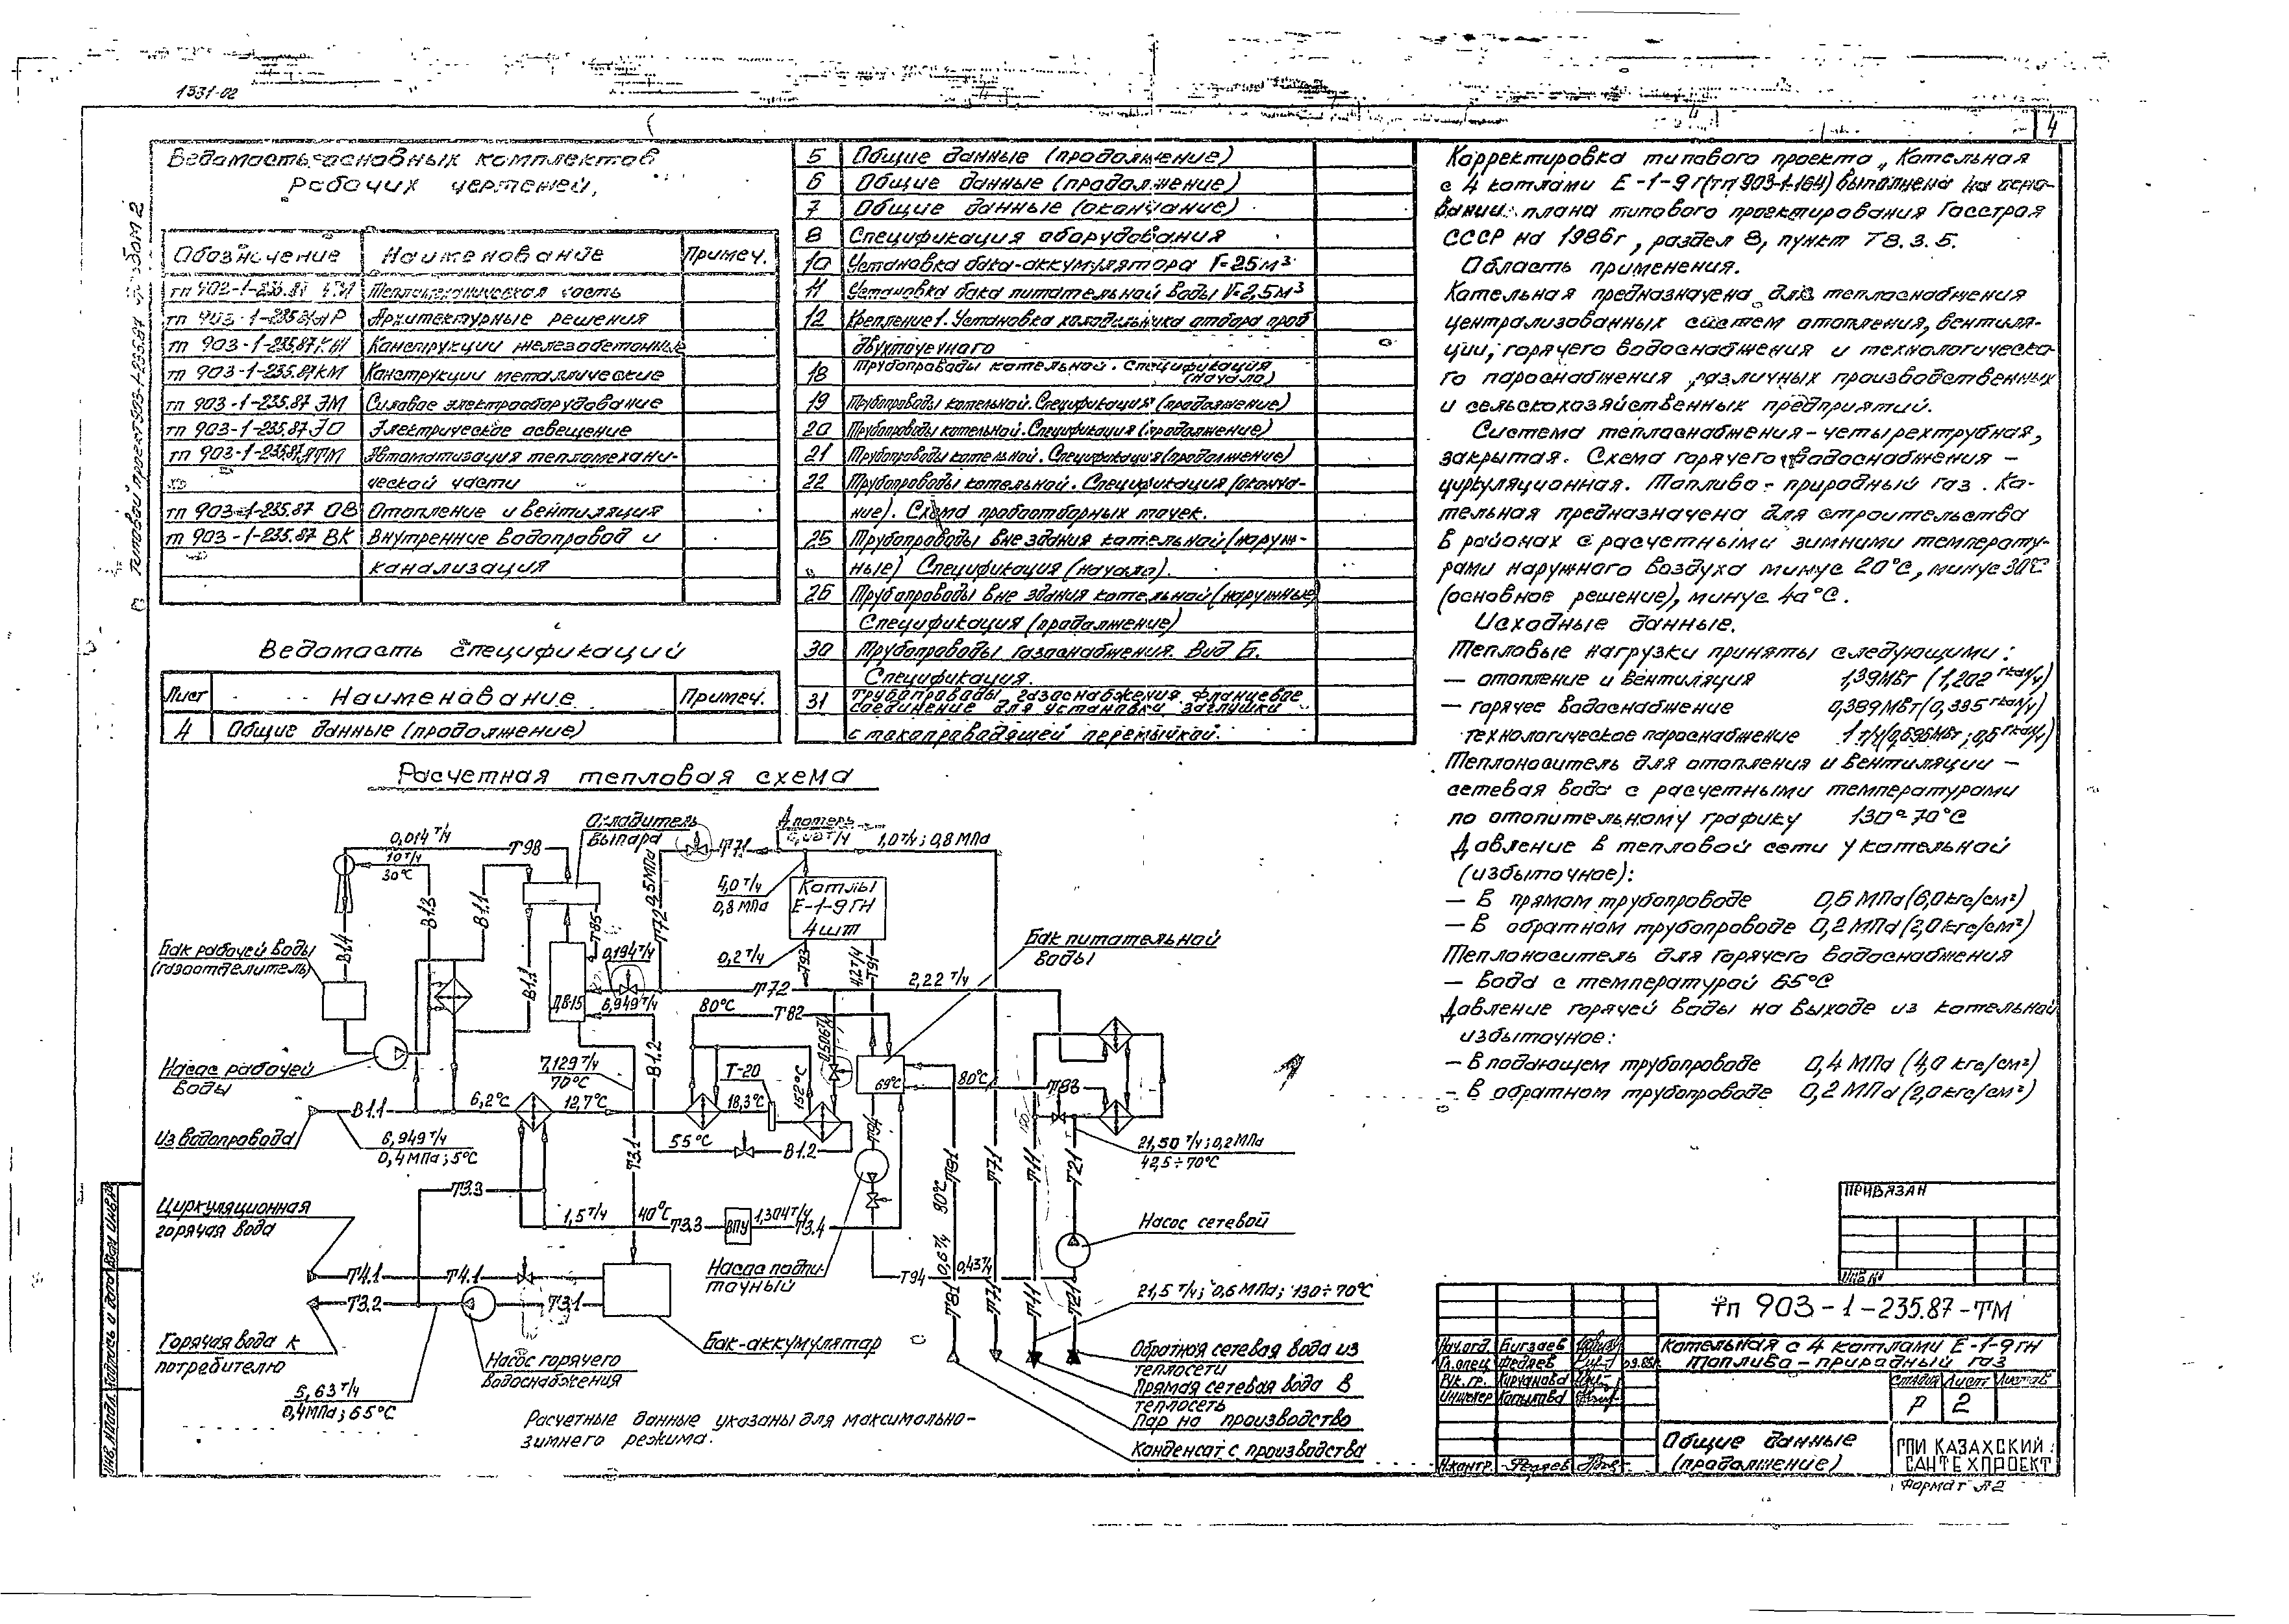 1331-02
4
Типовой проект 903-1-235.87 Альбом 2
Ведомость основных комплектов
рабочих чертежей.
Обозначение Наименование Примеч.
тп 903-1-235.87 ТМ Тепломеханическая часть
тп 903-1-235.87 АР Архитектурные решения
тп 903-1-235.87 КЖ Конструкции железобетонные
тп 903-1-235.87 КМ Конструкции металлические
тп 903-1-235.87 ЭМ Силовое электрооборудование
тп 903-1-235.87 ЭО Электрическое освещение
тп 903-1-235.87 АТМ Автоматизация тепломехани-
ческой части
тп 903-1-235.87 ОВ Отопление и вентиляция
тп 903-1-235.87 ВК Внутренние водопровод и
канализация
Ведомость спецификаций
Лист Наименование Примеч.
4 Общие данные (продолжение)
5 Общие данные (продолжение)
6 Общие данные (продолжение)
7 Общие данные (окончание)
8 Спецификация оборудования
10 Установка бака-аккумулятора V=25м³
11 Установка бака питательной воды V=2,5м³
12 Крепление 1. Установка холодильника отбора проб
двухточечного
18 Трубопроводы котельной. Спецификация
(начало)
19 Трубопроводы котельной. Спецификация (продолжение)
20 Трубопроводы котельной. Спецификация (продолжение)
21 Трубопроводы котельной. Спецификация (продолжение)
22 Трубопроводы котельной. Спецификация (оконча-
ние). Схема пробоотборных точек.
25 Трубопроводы вне здания котельной (наруж-
ные) Спецификация (начало).
26 Трубопроводы вне здания котельной (наружные)
Спецификация (продолжение)
30 Трубопроводы газоснабжения. Вид Б.
Спецификация.
31 Трубопроводы газоснабжения. Фланцевое
соединение для установки заглушки
с токопроводящей перемычкой.
Корректировка типового проекта „Котельная
с 4 котлами Е-1-9Г (тп 903-1-164) выполнена на осно-
вании плана типового проектирования Госстроя
СССР на 1986г, раздел 8, пункт Т8.3.5.
Область применения.
Котельная предназначена для теплоснабжения
централизованных систем отопления, вентиля-
ции, горячего водоснабжения и технологическо-
го пароснабжения различных производственных
и сельскохозяйственных предприятий.
Система теплоснабжения - четырехтрубная,
закрытая. Схема горячего водоснабжения -
циркуляционная. Топливо - природный газ. Ко-
тельная предназначена для строительства
в районах с расчетными зимними температу-
рами наружного воздуха минус 20°С, минус 30°С
(основное решение), минус 40°С.
Исходные данные.
Тепловые нагрузки приняты следующими:
— отопление и вентиляция 1,39МВт (1,202 гкал/ч)
— горячее водоснабжение 0,389МВт (0,335 гкал/ч)
технологическое пароснабжение 1 т/ч (0,696МВт; 0,6 гкал/ч)
Теплоноситель для отопления и вентиляции —
сетевая вода с расчетными температурами
по отопительному графику 130-70°С
Давление в тепловой сети у котельной
(избыточное):
— в прямом трубопроводе 0,6 МПа (6,0 кгс/см²)
— в обратном трубопроводе 0,2 МПа (2,0 кгс/см²)
Теплоноситель для горячего водоснабжения
— вода с температурой 65°С
Давление горячей воды на выходе из котельной
избыточное:
— в подающем трубопроводе 0,4 МПа (4,0 кгс/см²)
— в обратном трубопроводе 0,2 МПа (2,0 кгс/см²)
Расчетная тепловая схема
0,014 т/ч
Т98
10 т/ч
30°С
В1.4
В1.3
В1.1
В1.1
Охладитель
выпара
Т85
ДВ-15
0,194 т/ч
6,949 т/ч
Т72 0,5МПа
Т71
Д потерь
1,0 т/ч; 0,8 МПа
4,0 т/ч
0,8 МПа
Котлы
Е-1-9ГН
4 шт
0,2 т/ч
Т93
4,2 т/ч
Т91
Т72
2,22 т/ч
Бак питательной
воды
Бак рабочей воды
(газоотделитель)
Насос рабочей
воды
80°С
Т82
0,506 т/ч
69°С
80°С
Т83
7,129 т/ч
70°С
В1.2
Т-20
152°С
6,2°С
12,7°С
18,3°С
В1.1
Из водопровода
6,949 т/ч
0,4 МПа; 5°С
55°С
В1.2
Т3.1
Т94
Т81
Т71
Т11
Т21
21,50 т/ч; 0,2 МПа
42,5÷70°С
Циркуляционная
горячая вода
Т3.3
1,5 т/ч
40°С
Т3.3
ВПУ
1,304 т/ч
Т3.4
80°С
0,6 т/ч
0,43 т/ч
Насос сетевой
Насос подпи-
точный
Т94
Т81
Т71
Т11
Т21
Т4.1
Т4.1
Т3.2
Т3.1
21,5 т/ч; 0,6 МПа; 130÷70°С
Горячая вода к
потребителю
Насос горячего
водоснабжения
Бак-аккумулятор
5,63 т/ч
0,4МПа; 65°С
Обратная сетевая вода из
теплосети
Прямая сетевая вода в
теплосеть
Пар на производство
Конденсат с производства
Расчетные данные указаны для максимально-
зимнего режима.
ПРИВЯЗАН
Инв №
тп 903-1-235.87-ТМ
Котельная с 4 котлами Е-1-9ГН
Топливо - природный газ
Нач.отд.
Гл.спец. Федяев
Рук. гр.
Инженер Копылова
Н.контр. Федяев
Стадия Лист Листов
Р 2
Общие данные
(продолжение)
ГПИ КАЗАХСКИЙ
САНТЕХПРОЕКТ
Формат А2
Инв. № подл. Подпись и дата Взам. инв. №